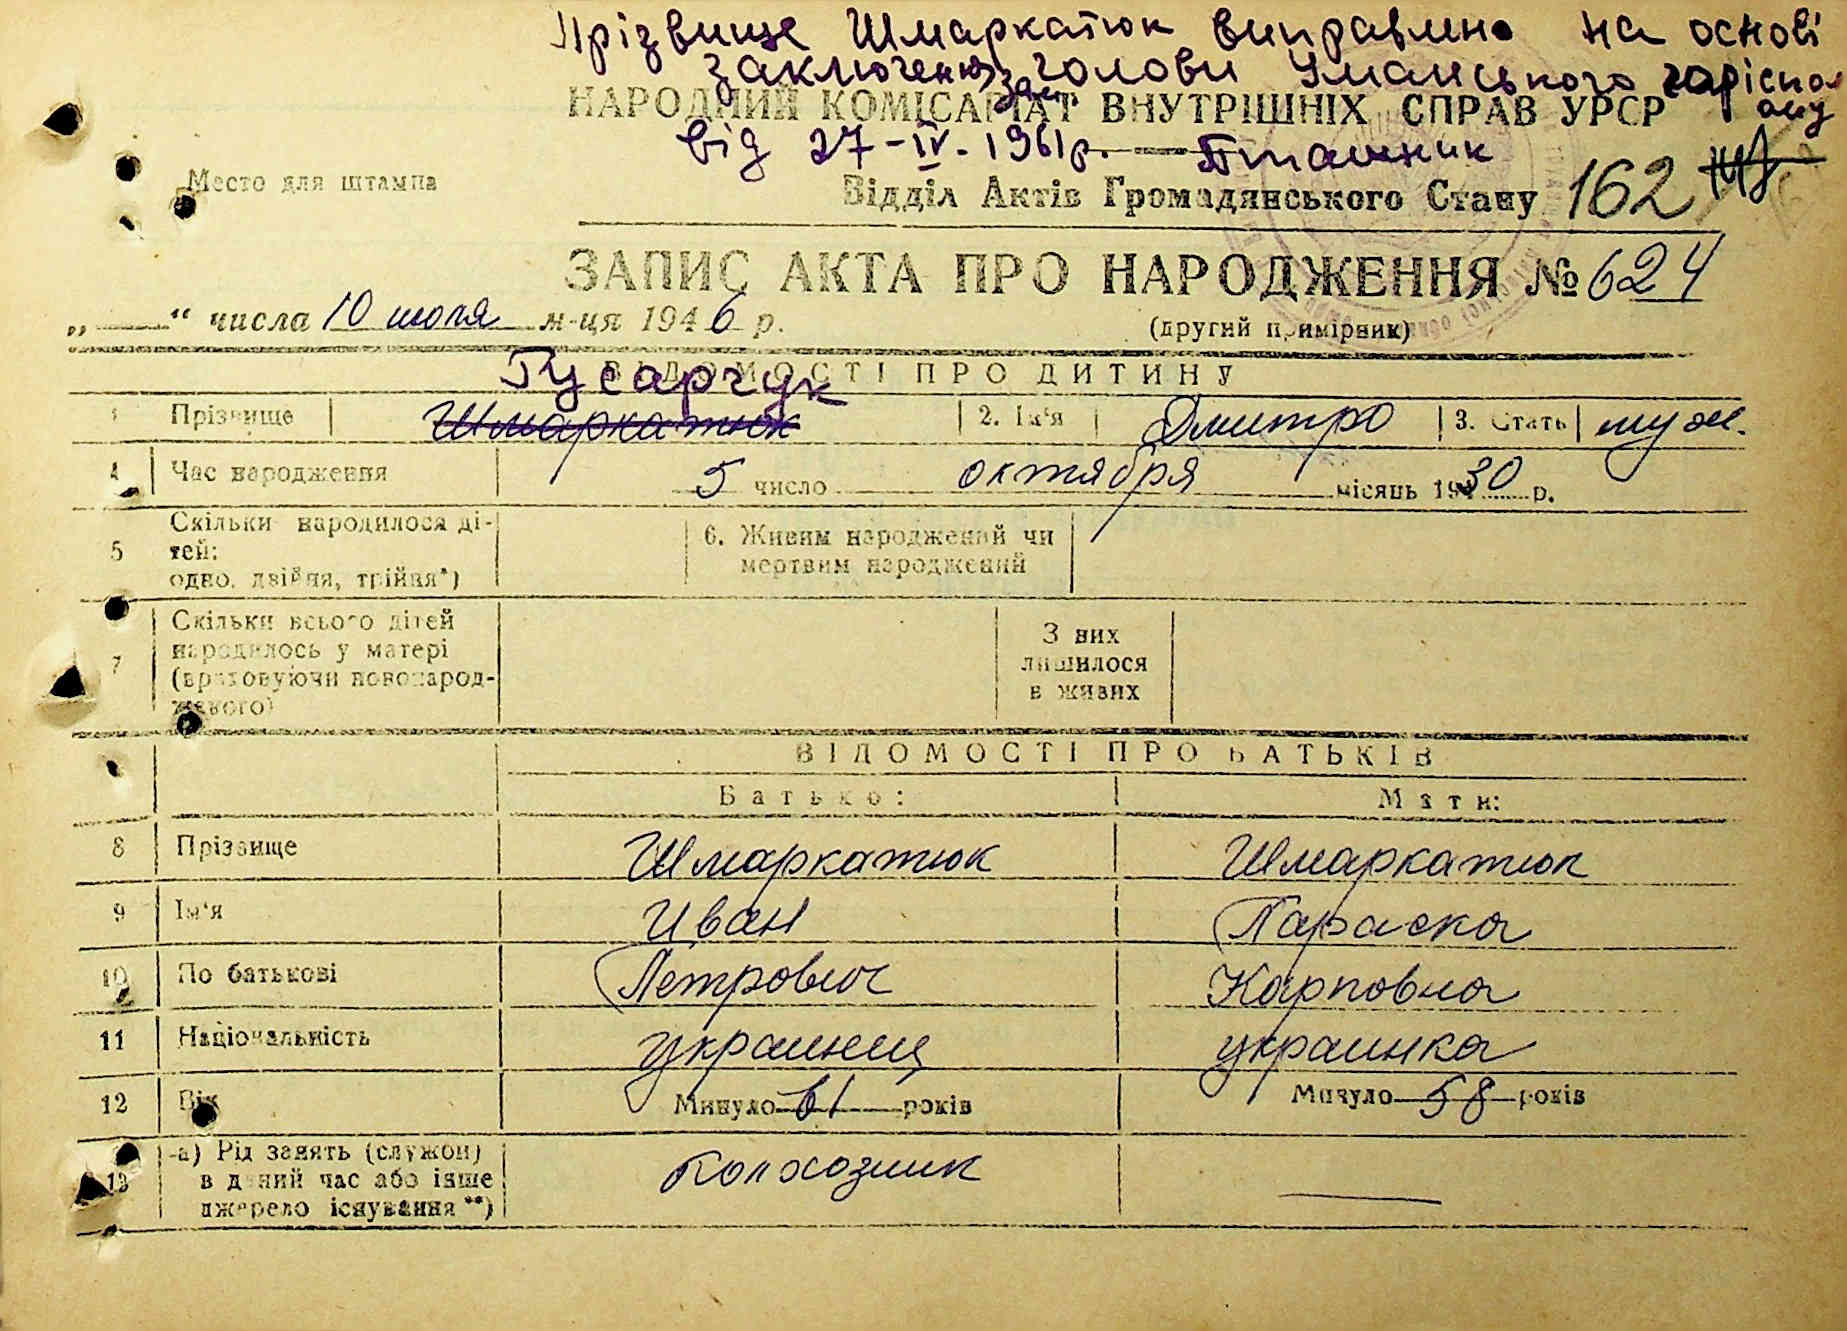 Прізвище Шмаркатюк виправлено на основі
заключення зам. голови Уманського міськвиконкому
НАРОДНИЙ КОМІСАРІАТ ВНУТРІШНІХ СПРАВ УРСР
від 27-IV-1961р.
Место для штампа
Відділ Актів Громадянського Стану 162
ЗАПИС АКТА ПРО НАРОДЖЕННЯ № 624
„ — “ числа 10 июля м-ця 1946 р. (другий примірник)
ВІДОМОСТІ ПРО ДИТИНУ
Гусарчук
1 Прізвище Шмаркатюк 2. Ім'я Дмитро 3. Стать муж.
4 Час народження 5 число октября місяць 1930 р.
Скільки народилося ді-
5 тей:
одно, двійня, трійня*)
6. Живим народжений чи
мертвим народжений
Скільки всього дітей
7 народилось у матері
(враховуючи новонарод-
женого)
З них
лишилося
в живих
ВІДОМОСТІ ПРО БАТЬКІВ
Батько: Мати:
8 Прізвище Шмаркатюк Шмаркатюк
9 Ім'я Иван Параска
10 По батькові Петрович Карповна
11 Національність украинец украинка
12 Вік Минуло 61 років Минуло 58 років
13 а) Рід занять (служби) Колхозник —
в даний час або інше
джерело існування **)